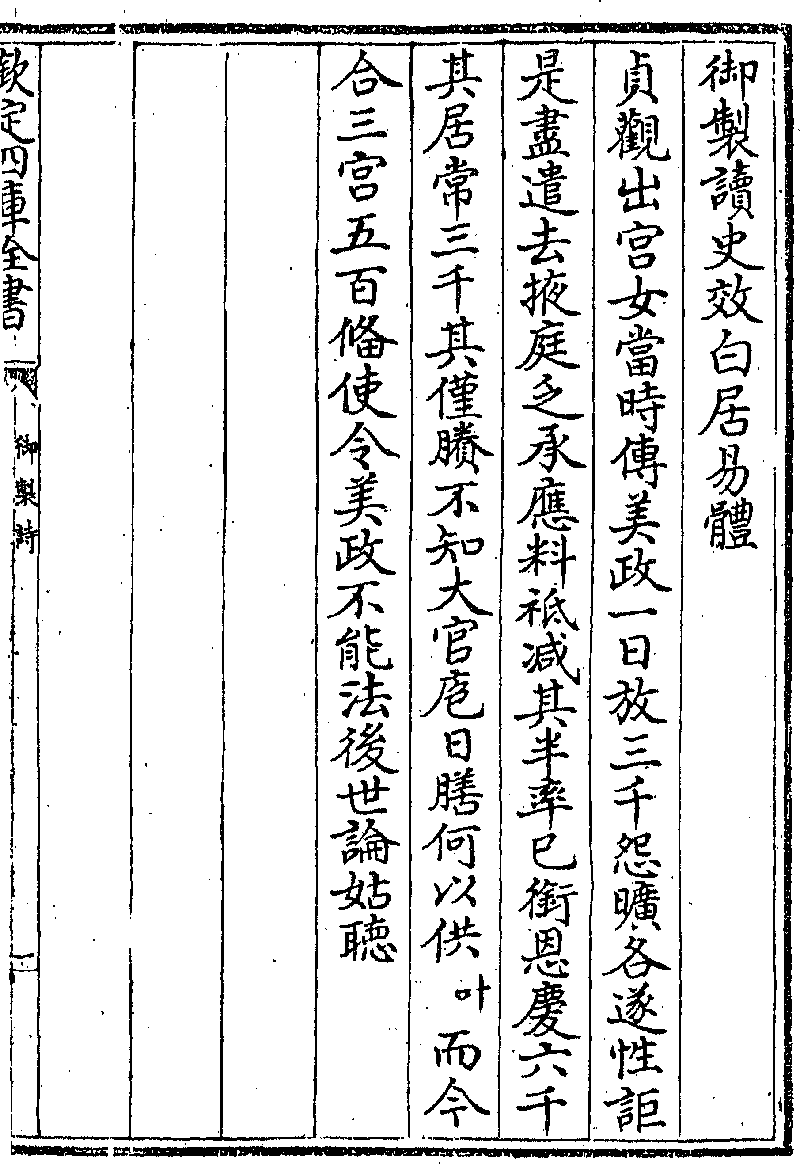 御製讀史效白居易體
貞觀出宮女當時傳美政一日放三千怨曠各遂性詎
是盡遣去掖庭乏承應料祗減其半率已銜恩慶六千
其居常三千其僅賸不知大官庖日膳何以供叶而今
合三宮五百偹使令美政不能法後世論姑聽
欽定四庫全書
御製詩
一